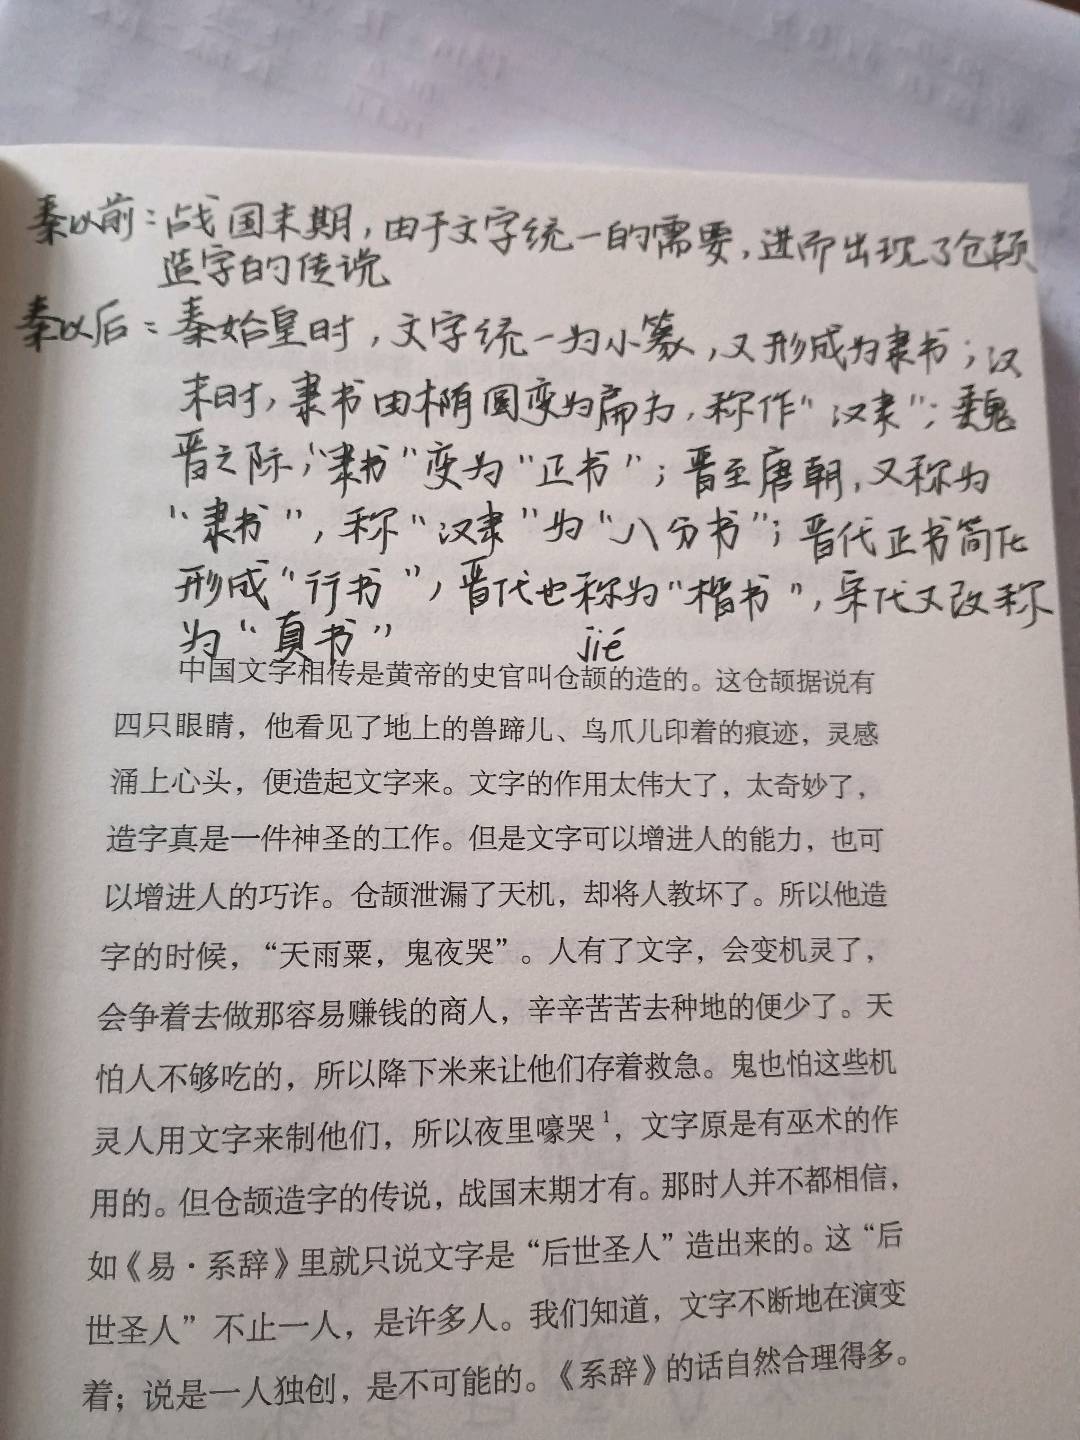 秦以前：战国末期，由于文字统一的需要，进而出现了仓颉
造字的传说
秦以后：秦始皇时，文字统一为小篆，又形成为隶书；汉
末时，隶书由椭圆变为扁方，称作“汉隶”；魏
晋之际，“隶书”变为“正书”；晋至唐朝，又称为
“隶书”，称“汉隶”为“八分书”；晋代正书简化
形成“行书”，晋代也称为“楷书”，宋代又改称
为“真书”
jié
中国文字相传是黄帝的史官叫仓颉的造的。这仓颉据说有
四只眼睛，他看见了地上的兽蹄儿、鸟爪儿印着的痕迹，灵感
涌上心头，便造起文字来。文字的作用太伟大了，太奇妙了，
造字真是一件神圣的工作。但是文字可以增进人的能力，也可
以增进人的巧诈。仓颉泄漏了天机，却将人教坏了。所以他造
字的时候，“天雨粟，鬼夜哭”。人有了文字，会变机灵了，
会争着去做那容易赚钱的商人，辛辛苦苦去种地的便少了。天
怕人不够吃的，所以降下米来让他们存着救急。鬼也怕这些机
灵人用文字来制他们，所以夜里嚎哭1，文字原是有巫术的作
用的。但仓颉造字的传说，战国末期才有。那时人并不都相信，
如《易·系辞》里就只说文字是“后世圣人”造出来的。这“后
世圣人”不止一人，是许多人。我们知道，文字不断地在演变
着；说是一人独创，是不可能的。《系辞》的话自然合理得多。